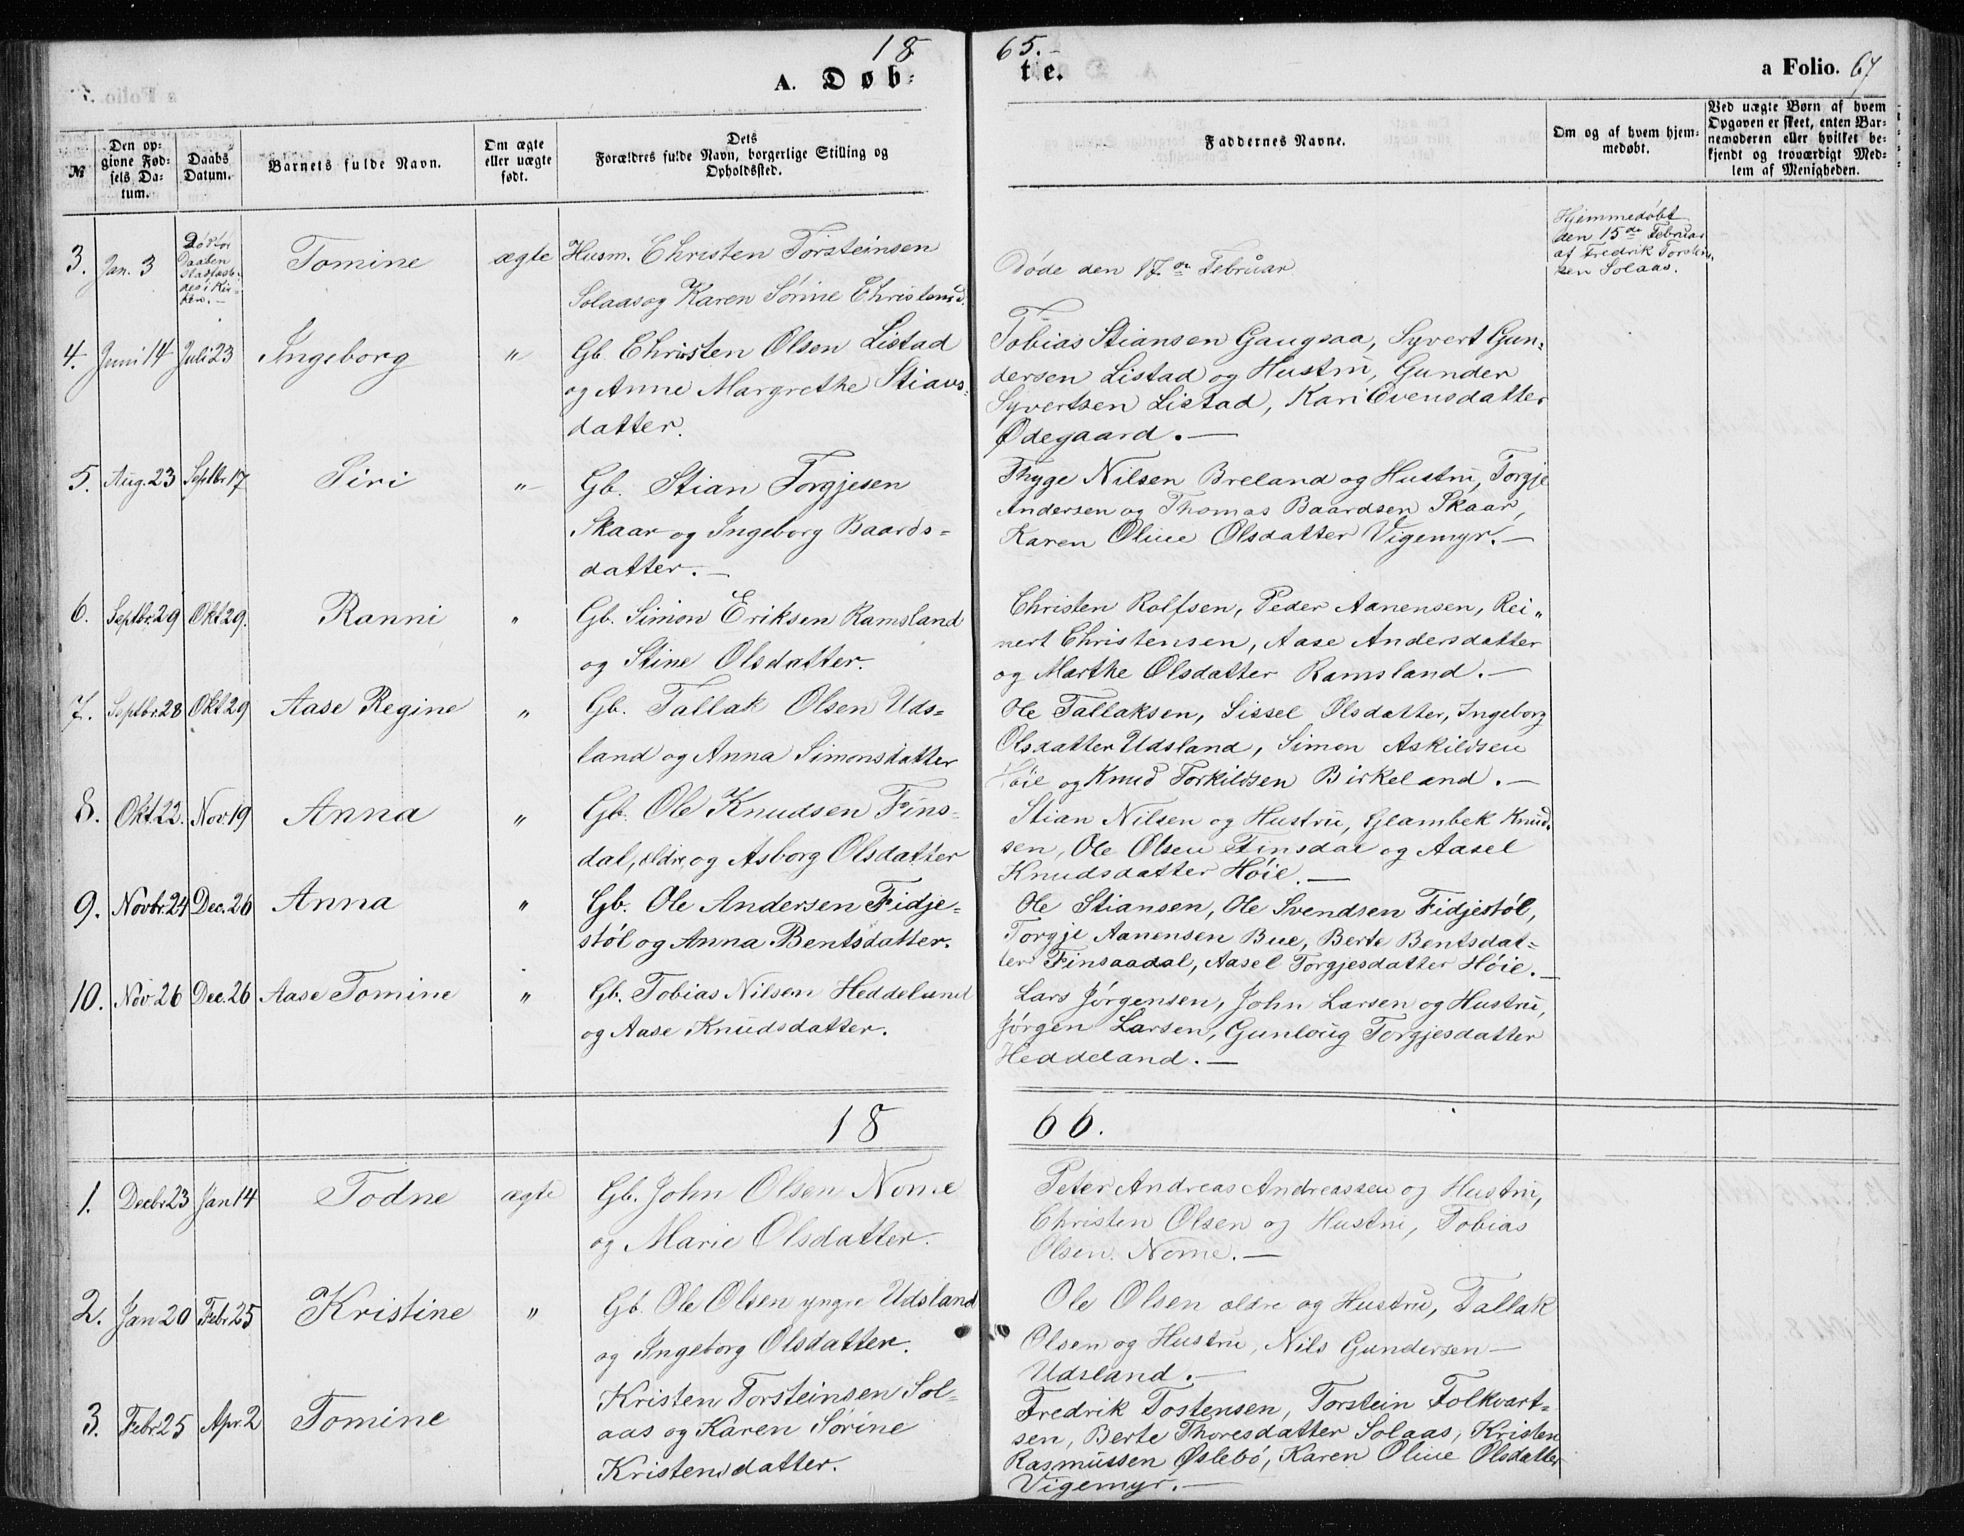 18 65.
A. Døb= te. a Folio. 67
№
Den op-
givne Fød-
sels Da-
tum.
Daabs
Datum.
Barnets fulde Navn.
Om ægte
eller uægte
født.
Dets
Forældres fulde Navn, borgerlige Stilling og
Opholdssted.
Faddernes Navne.
Om og af hvem hjem-
medøbt.
Ved uægte Børn af hvem
Opgaven er skeet, enten Bar-
nemoderen eller hvilket be-
kjendt og troværdigt Med-
lem af Menigheden.
3. Jan. 3
Død før
Daaben
stadfæste-
des i Kir-
ken.-
Tomine ægte
Husm. Christen Torsteinsen
Solaas og Karen Sørine Christensd.
Døde den 17de Februar
Hjemmedøbt
den 15de Februar
af Fredrik Torstein-
sen Solaas.
4. Juni 14 Juli 23 Ingeborg "
Gb. Christen Olsen Listad
og Anne Margrethe Stians-
datter.
Tobias Stiansen Gaugsaa, Syvert Gun-
dersen Listad og Hustru, Gunder
Syvertsen Listad, Kari Evensdatter
Ødegaard.—
5. Aug. 23 Septbr 17 Siri "
Gb. Stian Torgjesen
Skaar og Ingeborg Baards=
datter.—
Thyge Nilsen Breland og Hustru, Torgje
Andersen og Thomas Baardsen Skaar,
Karen Oline Olsdatter Vigemyr.—
6. Septbr. 29 Okt 29. Ranni "
Gb. Simon Eriksen Ramsland
og Stine Olsdatter.
Christen Rolfsen, Peder Aanensen, Rei-
nert Christensen, Aase Andersdatter
og Marthe Olsdatter Ramsland.—
7. Septbr. 28 Okt 29 Aase Regine "
Gb. Tallak Olsen Uds-
land og Anna Simonsdatter
Ole Tallaksen, Sissel Olsdatter, Ingeborg
Olsdatter Udsland, Simon Askildsen
Høie og Knud Torkildsen Birkeland.—
8. Okt. 22. Nov. 19 Anna "
Gb. Ole Knudsen Fins-
dal, ældre, og Asborg Olsdatter
Stian Nilsen og Hustru, Glambek Knud-
sen, Ole Olsen Finsdal og Aasel
Knudsdatter Høie.—
9. Novbr. 24 Dec. 26 Anna "
Gb. Ole Andersen Fidje-
støl og Anna Bentsdatter.
Ole Stiansen, Ole Svendsen Fidjestøl,
Torgje Aanensen Bue, Berte Bentsdat-
ter Finsaadal, Aasel Torgjesdatter Høie.—
10. Nov. 26 Dec. 26 Aase Tomine "
Gb. Tobias Nilsen Heddeland
og Aase Knudsdatter.
Lars Jørgensen, John Larsen og Hustru,
Jørgen Larsen, Gunloug Torgjesdatter
Heddeland.—
18 66.
1. Decbr 23 Jan 14 Todne ægte
Gb. John Olsen Nome
og Marie Olsdatter.
Peter Andreas Andreassen og Hustru,
Christen Olsen og Hustru, Tobias
Olsen Nome.—
2. Jan 20 Febr 25 Kristine "
Gb. Ole Olsen yngre Udsland
og Ingeborg Olsdatter.
Ole Olsen ældre og Hustru, Tallak
Olsen og Hustru, Nils Gundersen—
Udsland.—
3. Febr 25 Apr. 2 Tomine
Kristen Torsteinsen Sol-
aas og Karen Sørine
Kristensdatter.
Fredrik Tostensen, Torstein Folkvart-
sen, Berte Thoresdatter Solaas, Kristen
Rasmussen Øslebø, Karen Oline Olsdatter
Vigemyr.—